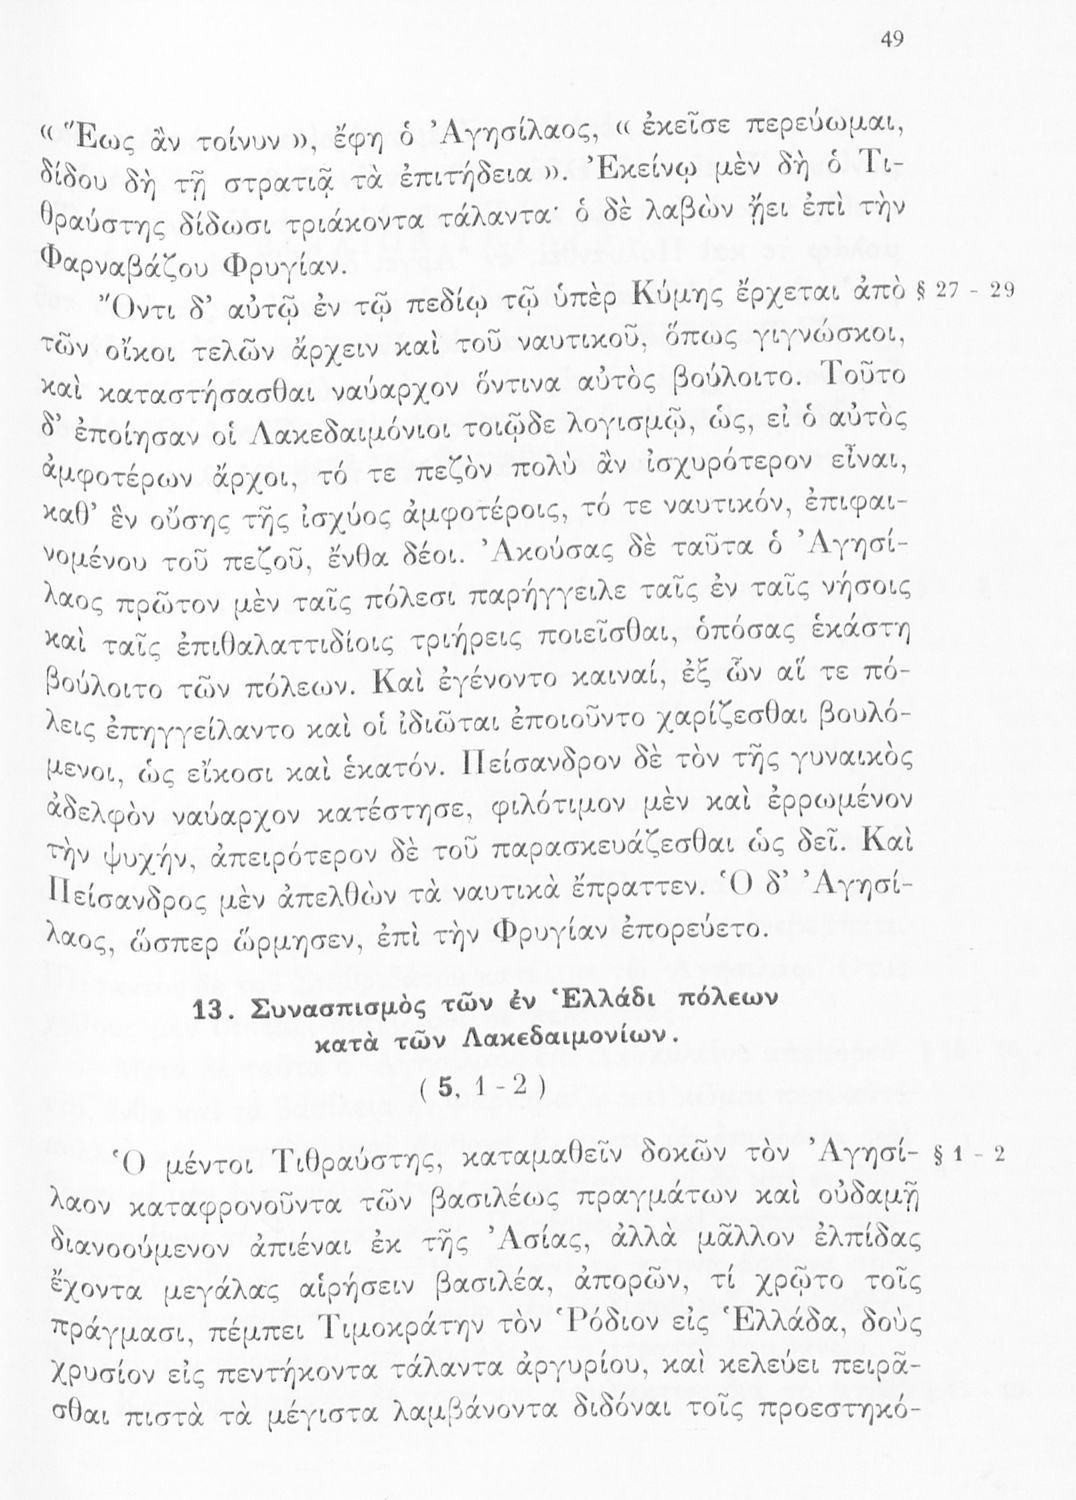 49
« Ἕως ἂν τοίνυν », ἔφη ὁ Ἀγησίλαος, « ἐκεῖσε περεύωμαι,
δίδου δὴ τῇ στρατιᾷ τὰ ἐπιτήδεια ». Ἐκείνῳ μὲν δὴ ὁ Τι-
θραύστης δίδωσι τριάκοντα τάλαντα· ὁ δὲ λαβὼν ᾔει ἐπὶ τὴν
Φαρναβάζου Φρυγίαν.
Ὄντι δ’ αὐτῷ ἐν τῷ πεδίῳ τῷ ὑπὲρ Κύμης ἔρχεται ἀπὸ § 27 - 29
τῶν οἴκοι τελῶν ἄρχειν καὶ τοῦ ναυτικοῦ, ὅπως γιγνώσκοι,
καὶ καταστήσασθαι ναύαρχον ὅντινα αὐτὸς βούλοιτο. Τοῦτο
δ’ ἐποίησαν οἱ Λακεδαιμόνιοι τοιῷδε λογισμῷ, ὡς, εἰ ὁ αὐτὸς
ἀμφοτέρων ἄρχοι, τό τε πεζὸν πολὺ ἂν ἰσχυρότερον εἶναι,
καθ’ ἓν οὔσης τῆς ἰσχύος ἀμφοτέροις, τό τε ναυτικόν, ἐπιφαι-
νομένου τοῦ πεζοῦ, ἔνθα δέοι. Ἀκούσας δὲ ταῦτα ὁ Ἀγησί-
λαος πρῶτον μὲν ταῖς πόλεσι παρήγγειλε ταῖς ἐν ταῖς νήσοις
καὶ ταῖς ἐπιθαλαττιδίοις τριήρεις ποιεῖσθαι, ὁπόσας ἑκάστη
βούλοιτο τῶν πόλεων. Καὶ ἐγένοντο καιναί, ἐξ ὧν αἵ τε πό-
λεις ἐπηγγείλαντο καὶ οἱ ἰδιῶται ἐποιοῦντο χαρίζεσθαι βουλό-
μενοι, ὡς εἴκοσι καὶ ἑκατόν. Πείσανδρον δὲ τὸν τῆς γυναικὸς
ἀδελφὸν ναύαρχον κατέστησε, φιλότιμον μὲν καὶ ἐρρωμένον
τὴν ψυχήν, ἀπειρότερον δὲ τοῦ παρασκευάζεσθαι ὡς δεῖ. Καὶ
Πείσανδρος μὲν ἀπελθὼν τὰ ναυτικὰ ἔπραττεν. Ὁ δ’ Ἀγησί-
λαος, ὥσπερ ὥρμησεν, ἐπὶ τὴν Φρυγίαν ἐπορεύετο.
13. Συνασπισμὸς τῶν ἐν Ἑλλάδι πόλεων
κατὰ τῶν Λακεδαιμονίων.
( 5, 1 - 2 )
Ὁ μέντοι Τιθραύστης, καταμαθεῖν δοκῶν τὸν Ἀγησί- § 1 - 2
λαον καταφρονοῦντα τῶν βασιλέως πραγμάτων καὶ οὐδαμῇ
διανοούμενον ἀπιέναι ἐκ τῆς Ἀσίας, ἀλλὰ μᾶλλον ἐλπίδας
ἔχοντα μεγάλας αἱρήσειν βασιλέα, ἀπορῶν, τί χρῷτο τοῖς
πράγμασι, πέμπει Τιμοκράτην τὸν Ῥόδιον εἰς Ἑλλάδα, δοὺς
χρυσίον εἰς πεντήκοντα τάλαντα ἀργυρίου, καὶ κελεύει πειρᾶ-
σθαι πιστὰ τὰ μέγιστα λαμβάνοντα διδόναι τοῖς προεστηκό-